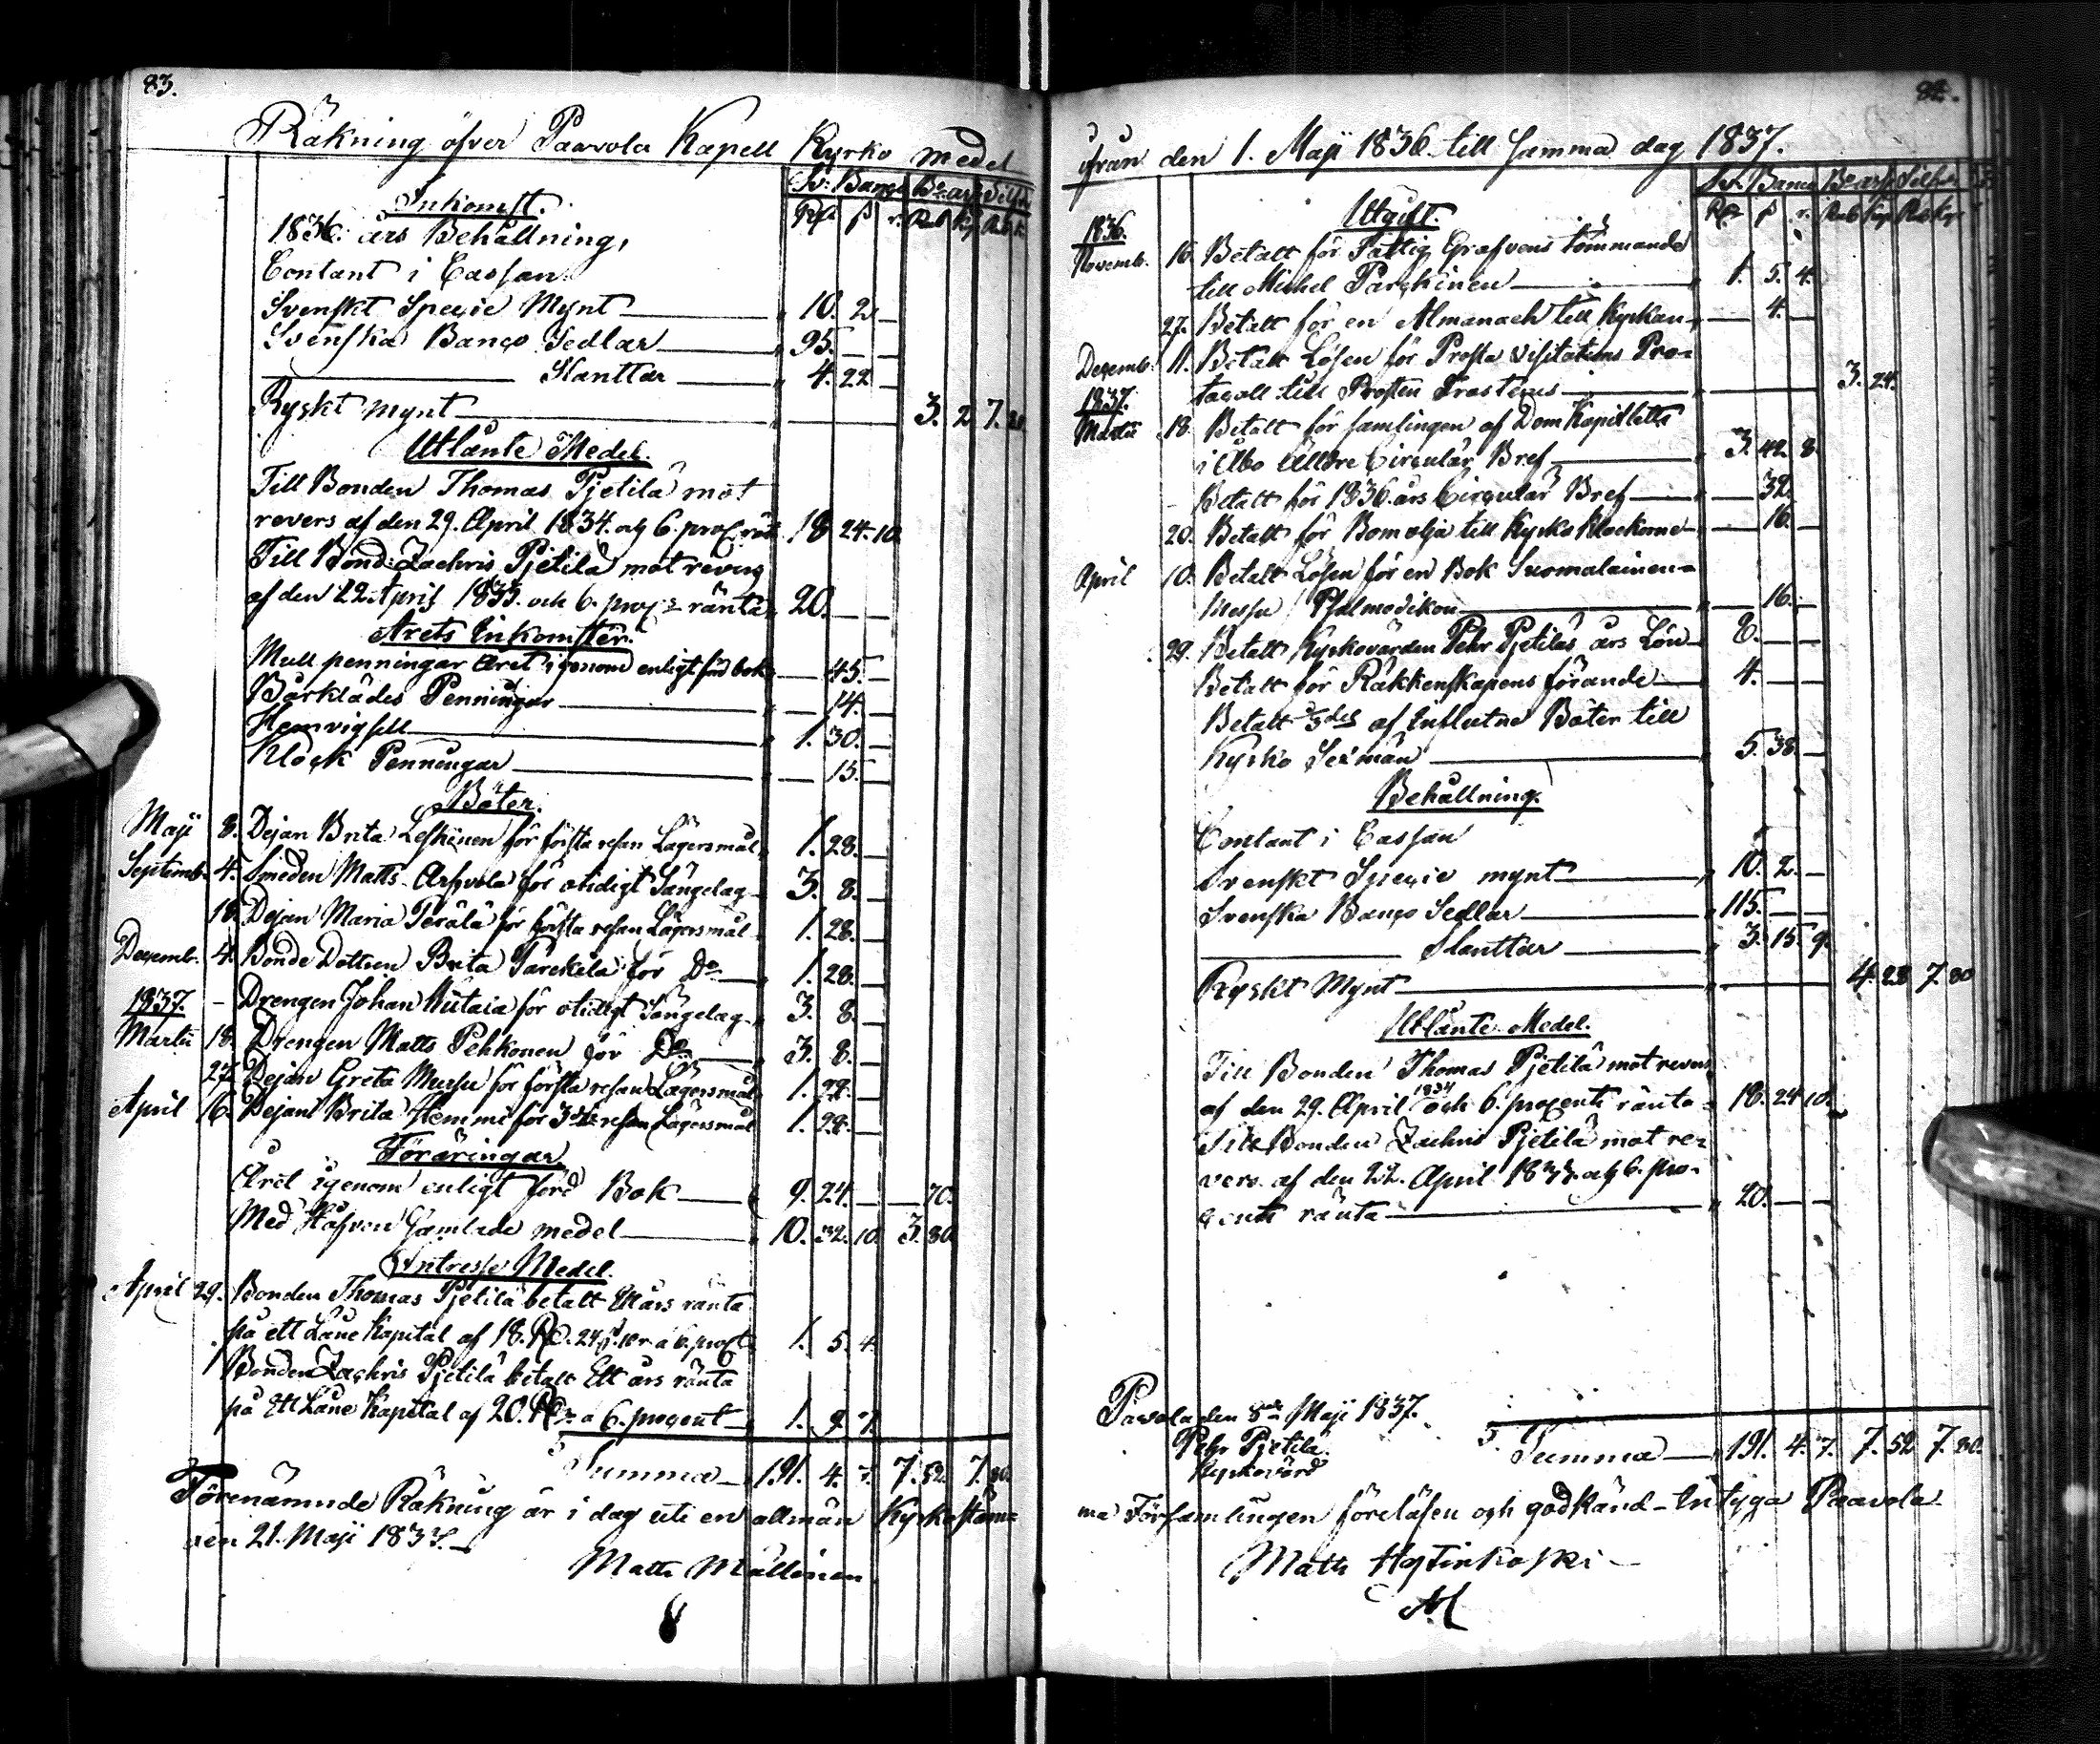 83.
Räkning öfver Paavola Kapell Kyrko medel
Sv: Banco Bco ass Silfv
Rdr ß r. Rub Kp Rub K
Inkomst.
1836. års Behållning,
Contant i Cassan.
Svenskt Specie Mynt 10. 2.
Svenska Banco Sedlar 95.
Slanttar 4. 22
Ryskt mynt 3. 2 7. 80
Utlånte Medel.
Till Bonden Thomas Pjetilä mot
revers af den 29. April 1834. och 6. proc. rän 18 24. 10.
Till Bond: Zachris Pjetilä mot revers
af den 22. April 1833. och 6. proc: ränta 20.
Årets Inkomster.
Mull penningar Året igenom enligt förd bok 45.
Bårklädes Penningar 14.
Hemvigsell 1. 30.
Klock Penningar 15.
Böter.
Maji 8. Dejan Brita Leskinen för första resan Lägersmål 1. 28.
Septemb. 4. Smeden Matts Arfvola för otidigt Sängelag 3. 8.
18. Dejan Maria Perälä för första resan Lägersmål 1. 28.
Decemb. 4. Bonde Dottren Brita Tarekila för Do 1. 28.
1837. – Drengen Johan Kutaia för otidigt Sängelag 3. 8.
Martii 18. Drengen Matts Pehkonen för Do 3. 8.
27. Dejan Greta Mursu för första resan Lägersmål 1. 28.
April 16. Dejan Brita Hemmi för 3dje resan Lägersmål 1. 28.
Föräringar.
Året igenom enligt förd Bok 9. 24. 70.
Med Håfven Samlade medel 10. 32. 10. 3. 80
Intresse Medel.
April 29. Bonden Thomas Pjetilä betalt Ett års ränta
på ett Låne Kapital af 18. Rd. 24 ß. 10 r a 6. proct 1. 5 4.
Bonden Zachris Pjetilä betalt Ett års ränta
på Ett Låne Kapital af 20. Rdr a 6. procent 1. 9 7.
Summa 191. 4. 7. 7. 52. 7. 80.
Förenämnde Räkning är i dag uti en allmän Kyrkostäm=
den 21. Maji 1837.
Matts Mällinen
84.
ifrån den 1. Maji 1836. till samma dag 1837.
Sv. Banco Bco ass Silfv
Rdr ß r. Rub Kop Rub Kp
Utgift.
1836.
Novemb. 16. Betalt för Fattig Grafvens tömmande
till Michel Parkinen 1. 5. 4.
27. Betalt för en Almanach till Kyrkan 4.
Decemb. 11. Betalt Lösen för Prosta Visitations Pro=
tocoll till Prosten Frosterus 3. 24.
1837.
Martii 18. Betalt för samlingen af Dom Kapitlets
i Åbo Älldre Circulär Bref 3. 42. 8.
– Betalt för 1836. års Circulär Bref 32.
20. Betalt för Bomolja till Kyrko Klockorne 16.
April 10. Betalt Lösen för en Bok Suomalainen
Messu Psalmodikon 16.
29. Betalt Kyrkovärden Pehr Pjetiläs års Lön 8.
Betalt för Räkkenskapens förande 4.
Betalt ⅓del af Influtne Böter till
Kyrko Sexmän 5. 38.
Behållning.
Contant i Cassan
Svenskt Specie mynt 10. 2.
Svenska Banco Sedlar 115.
Slanttar 3. 15. 9.
Ryskt Mynt 4. 28 7. 80
Utlånte Medel.
Till Bonden Thomas Pjetilä mot revers
af den 29. April 1834 och 6. procents ränta 18. 24 10.
Till Bonden Zachris Pjetilä mot re=
vers af den 22. April 1833. och 6. pro=
cents ränta 20.
Pavola den 8de Maji 1837.
Pehr Pjetilä
Kyrkovärd
Summa 191. 4. 7. 7. 52 7. 80.
ma Församlingen föreläsen och godkänd – Intyga Paavola
Matts Hyttinkoski